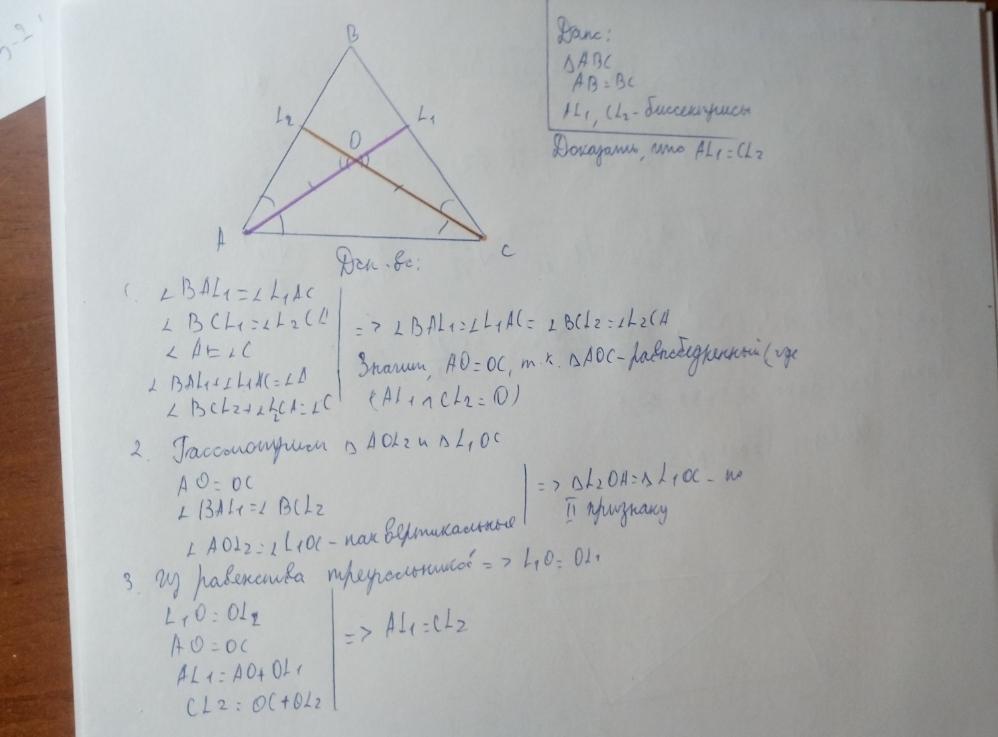 B
L₂
L₁
O
A
C
Дано:
△ABC
AB=BC
AL₁, CL₂-биссектрисы
Доказать, что AL₁=CL₂
Док-во:
1. ∠BAL₁=∠L₁AC
∠BCL₁=∠L₂CA
∠A=∠C
∠BAL₁+∠L₁AC=∠A
∠BCL₂+∠L₂CA=∠C
=> ∠BAL₁=∠L₁AC=∠BCL₂=∠L₂CA
Значит, AO=OC, т.к. △AOC-равнобедренный (где
(AL₁∩CL₂=O)
2. Рассмотрим △AOL₂ и △L₁OC
AO=OC
∠BAL₁=∠BCL₂
∠AOL₂=∠L₁OC-как вертикальные
=> △L₂OA=△L₁OC-по
II признаку
3. Из равенства треугольников => L₁O=OL₁
L₁O=OL₂
AO=OC
AL₁=AO+OL₁
CL₂=OC+OL₂
=> AL₁=CL₂